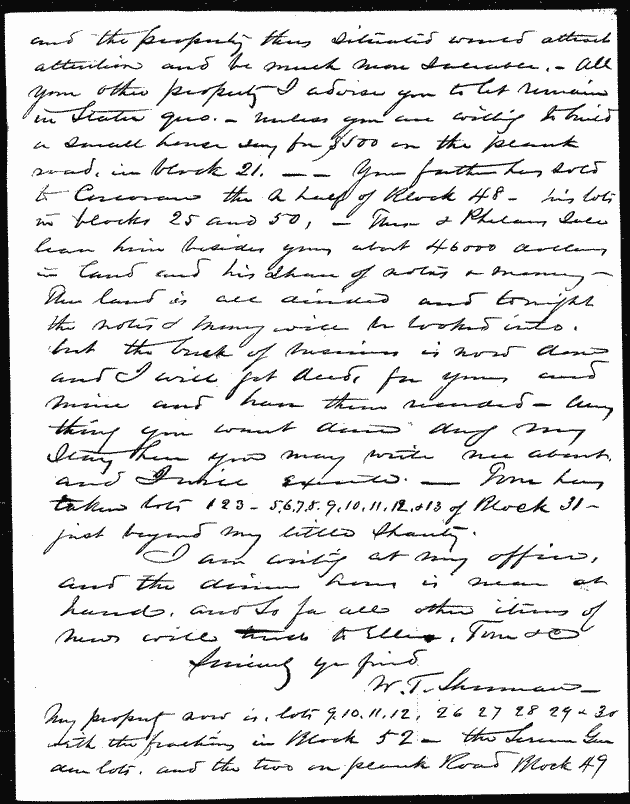 and the property thus situated would attract
attention and be much more saleable. - All
your other property I advise you to let remain
in Statu quo. - unless you are willing to build
a small house say for $500 on the plank
road, in block 21. — — Your father has sold
to Corcoran the half of Block 48 - his lots
in blocks 25 and 50, - This & Phelans Sale
leave him besides yours about 46000 dollars
in land and his share of notes & money -
The land is all divided and tonight
the notes & money will be looked into.
but the bulk of business is now done
and I will get deeds for yours and
mine and have them recorded - Any
thing you want done dug my
stay here you may write me about.
and I will execute. — Tom has
taken lots 1 2 3 - 5.6.7.8.9.10.11.12.&13 of Block 31 -
just beyond my little Shanty.
I am writing at my office,
and the dinner hour is near at
hand. and so far all other items of
news will to Ellen, Tom &c
Sincerely yr friend
W. T. Sherman -
My property now is. lots 9.10.11.12. 26 27 28 29 & 30
with the fractions in Block 52 - the
lots. and the two on plank Road Block 49